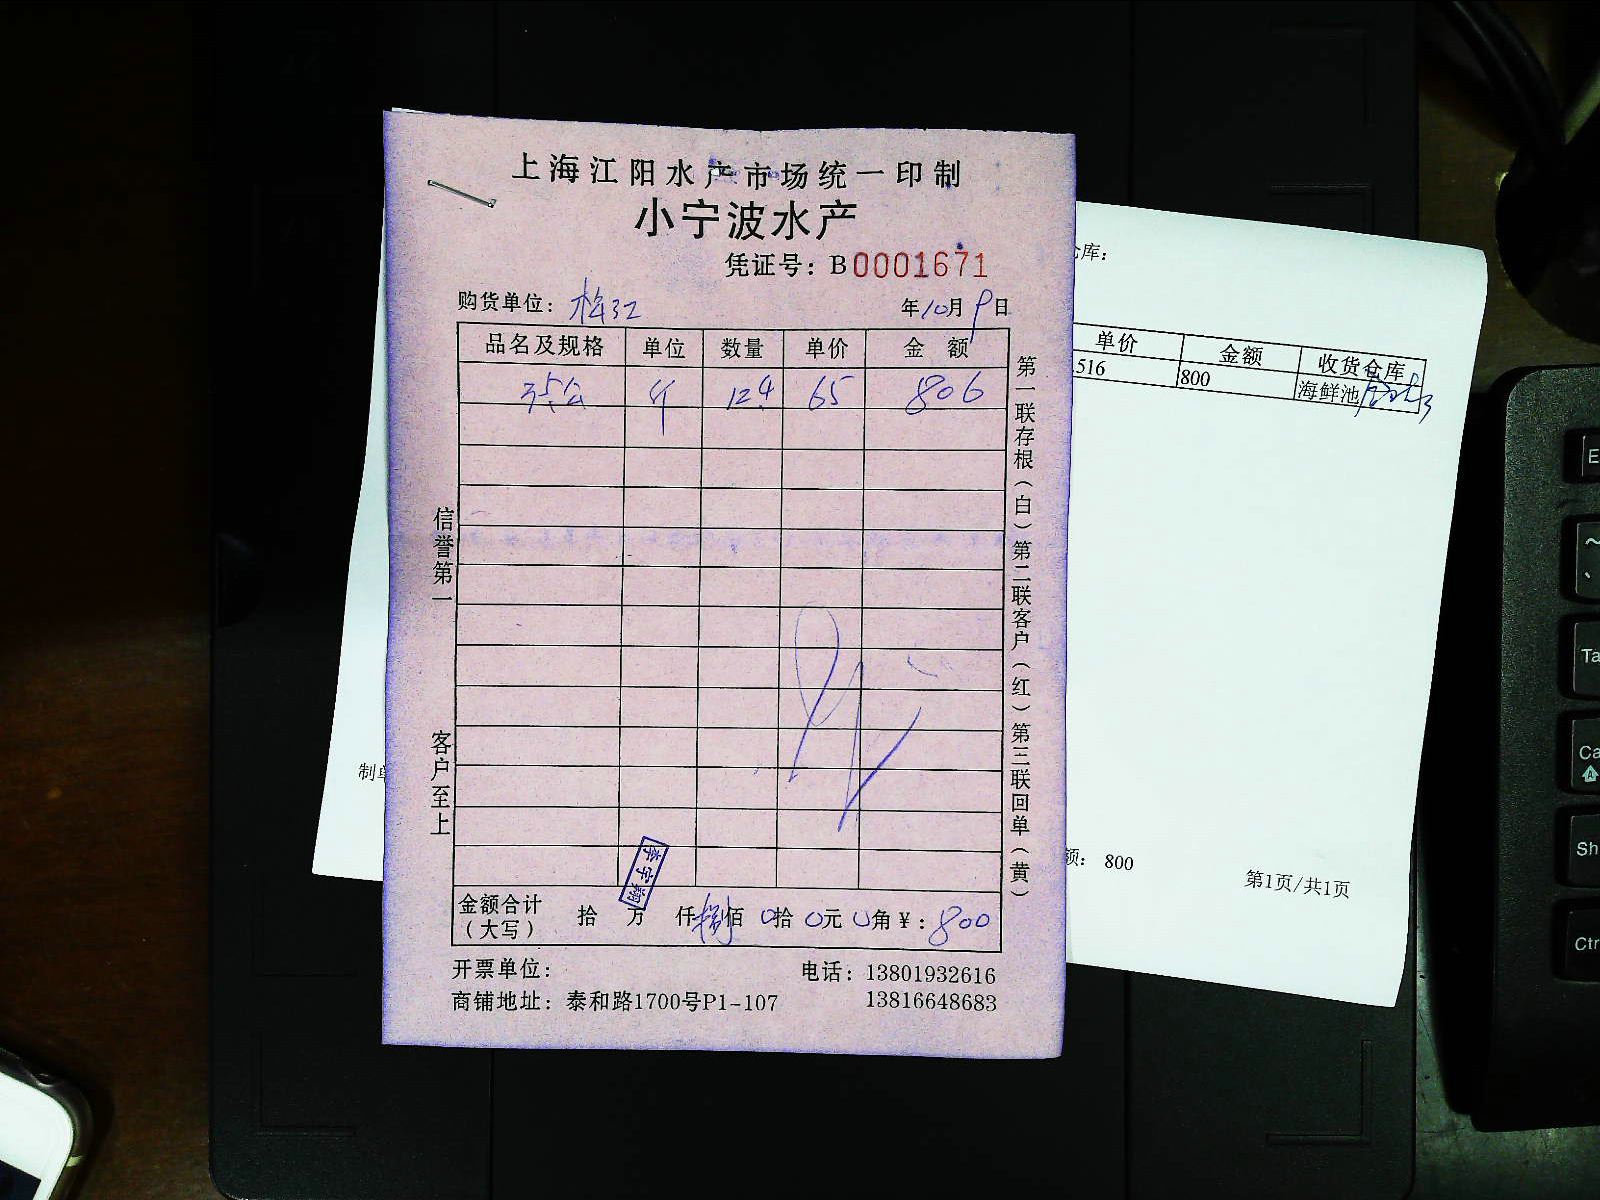 上海江阳水产市场统一印制
小宁波水产
凭证号：B0001671
购货单位：梅江 年10月9日
品名及规格 单位 数量 单价 金 额
斤 124 65 806
信誉第一
客户至上
第一联存根（白）第二联客户（红）第三联回单（黄）
李宇翔
金额合计（大写） 拾 万 仟捌佰0拾0元0角￥：800
开票单位： 电话：13801932616
商铺地址：泰和路1700号P1-107 13816648683
仓库：
单价 金额 收货仓库
.516 800 海鲜池
制单
额： 800
第1页/共1页
Ctr